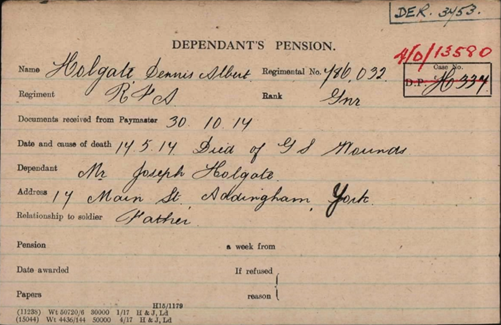 DER. 3453.
DEPENDANT'S PENSION.
4/0/13580
Name Holgate, Dennis Albert Regimental No. 786,032 Case No.
D.P. H334
Regiment R.F.A Rank Gnr
Documents received from Paymaster 30.10.17
Date and cause of death 14.5.17 Died of G S Wounds
Dependant Mr Joseph Holgate.
Address 17 Main St, Addingham, York.
Relationship to soldier Father
Pension a week from
Date awarded If refused
Papers reason
H15/1179
(11235) Wt 50720/6 50000 1/17 H & J, Ld
(15044) Wt 4436/144 50000 4/17 H & J, Ld